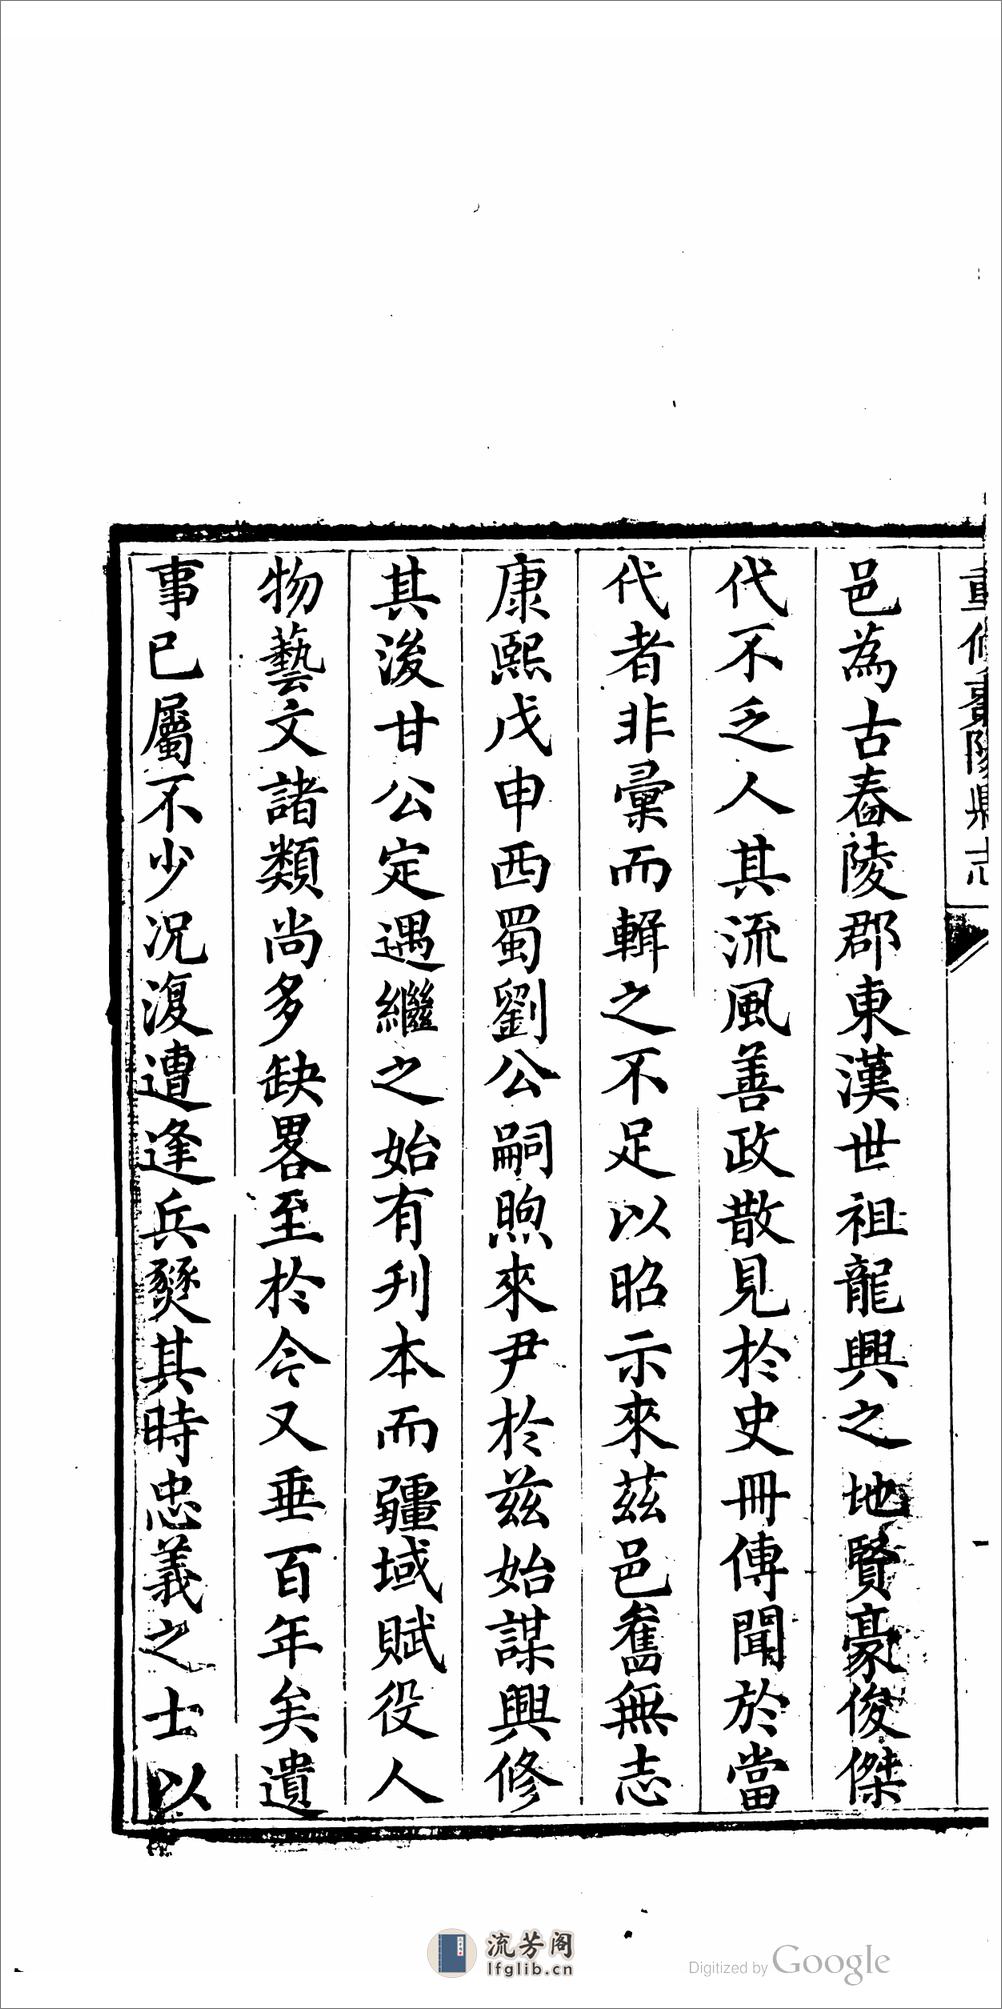 重修棗陽縣志
邑為古舂陵郡東漢世祖龍興之地賢豪俊傑
代不乏人其流風善政散見於史冊傳聞於當
代者非彙而輯之不足以昭示來茲邑舊無志
康熙戊申西蜀劉公嗣煦來尹於茲始謀興修
其後甘公定遇繼之始有刊本而疆域賦役人
物藝文諸類尚多缺畧至於今又垂百年矣遺
事已屬不少況復遭逢兵燹其時忠義之士以
流芳阁
lfglib.cn
Digitized by Google